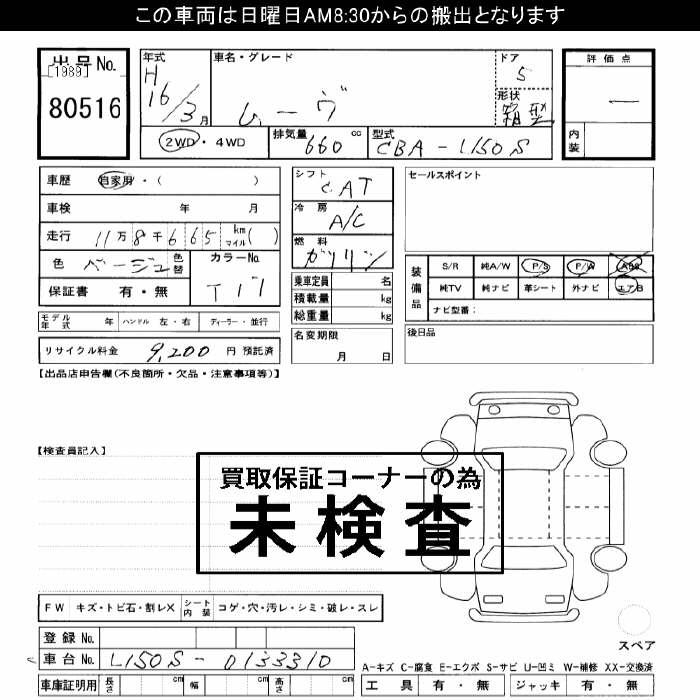 この車両は日曜日AM8:30からの搬出となります
出品No.
[1989]
80516
年式
H
16/3月
車名・グレード
ムーヴ
ドア
5
形状
箱型
評価点
—
内装
2WD・4WD
排気量
660 cc
型式
CBA-L150S
車歴 自家用・( )
車検 年 月
走行 11万8千665 km マイル( )
色 ベージュ 色替
カラーNo.
T17
保証書 有・無
シフト
CAT
冷房
A/C
燃料
ガソリン
乗車定員 名
積載量 kg
総重量 kg
名変期限
月 日
セールスポイント
装備品
S/R 純A/W P/S P/W ABS
純TV 純ナビ 革シート 外ナビ エアB
ナビ型番:
後日品
モデル年式 年 ハンドル 左・右 ディーラー・並行
リサイクル料金 9,200 円 預託済
【出品店申告欄(不良箇所・欠品・注意事項等)】
【検査員記入】
買取保証コーナーの為
未検査
FW キズ・トビ石・割レX シート内装 コゲ・穴・汚レ・シミ・破レ・スレ
スペア
登録No.
車台No. L150S-0133310
車庫証明用 長さ cm 幅 cm 高さ cm
A-キズ C-腐食 E-エクボ S-サビ U-凹ミ W-補修 XX-交換済
工具 有・無 ジャッキ 有・無